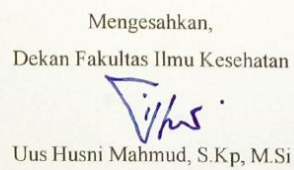 Mengesahkan,
Dekan Fakultas Ilmu Kesehatan
Uus Husni Mahmud, S.Kp, M.Si